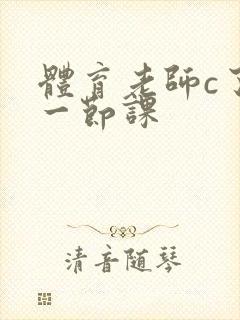 體育老師c了
一節課
清音随琴